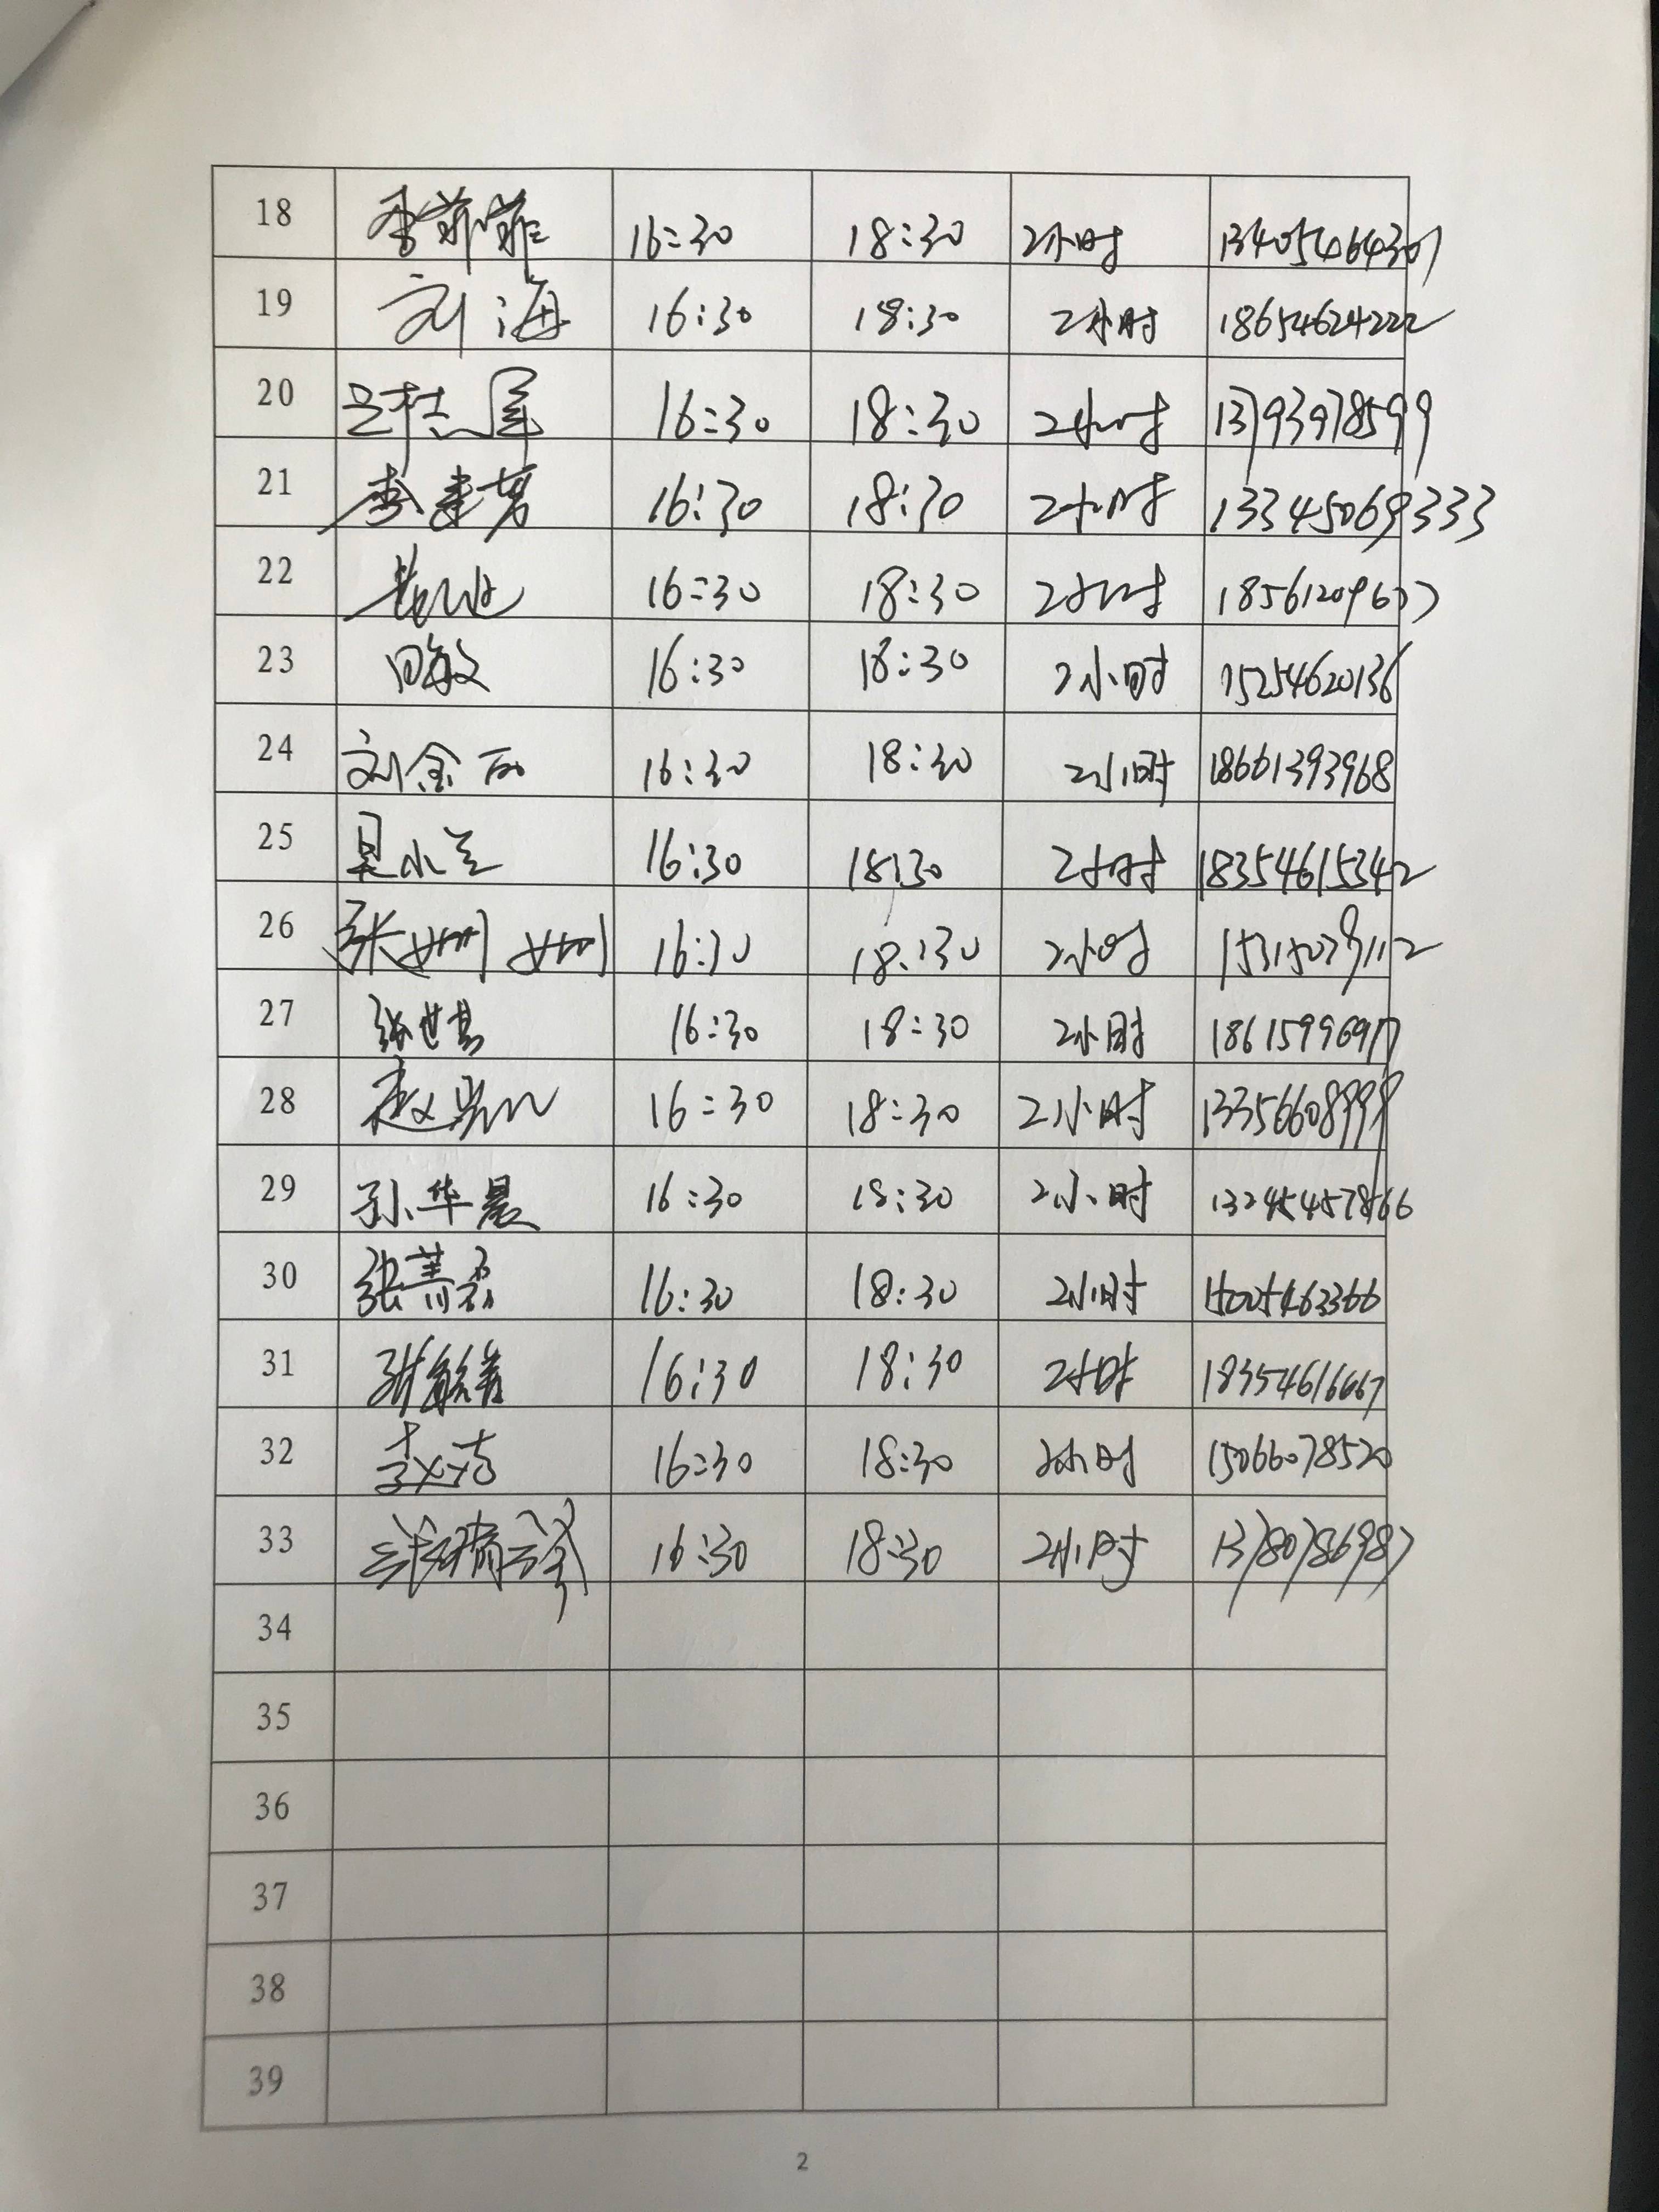 18 李菲菲 16:30 18:30 2小时 13405464307
19 刘海 16:30 18:30 2小时 18654624222
20 16:30 18:30 2小时 13793978599
21 李建芳 16:30 18:30 2小时 13345069333
22 16:30 18:30 2小时
23 田敏 16:30 18:30 2小时 15254620136
24 刘金 16:30 18:30 2小时 18661393968
25 吴小兰 16:30 18:30 2小时 18354615342
26 张姗姗 16:30 18:30 2小时 15315079112
27 张世 16:30 18:30 2小时
28 赵 16:30 18:30 2小时 13356608999
29 孙华晨 16:30 18:30 2小时
30 张 16:30 18:30 2小时 15005463366
31 张敏 16:30 18:30 2小时 18354616667
32 16:30 18:30 2小时 15066078520
33 16:30 18:30 2小时 13780786987
34
35
36
37
38
39
2